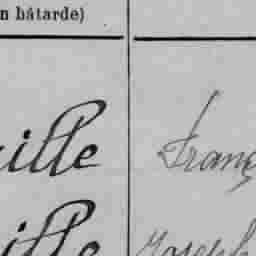 n bâtarde)
ille Franç
ille Joseph